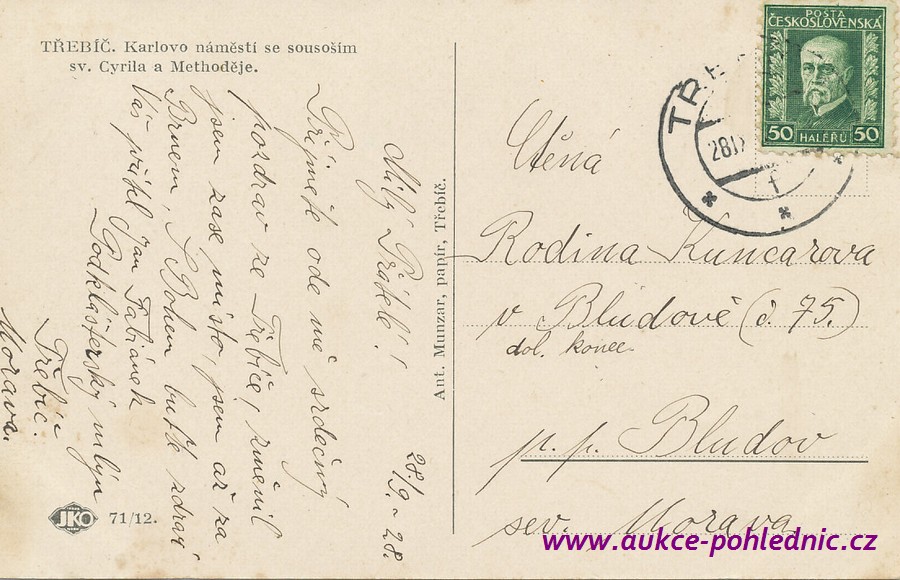 TŘEBÍČ. Karlovo náměstí se sousoším
sv. Cyrila a Methoděje.
28/9 - 28.
Milý Přátelé!
Přijměte ode mě srdečný
pozdrav ze Třebíče, změnil
jsem zase místo jsem až za
Brnem, S Bohem buďte zdraví
Váš přítel Jan Fabiánek
Podklášterský mlýn
Třebíč.
Morava.
Ant. Munzar, papír, Třebíč.
JKO 71/12.
POŠTA
ČESKOSLOVENSKÁ
50 HALÉŘŮ 50
TŘEB
28.I
Ctěná
Rodina Kuncarova
v Bludově (č. 75.)
dol. konec
p. p. Bludov
sev. Morava
www.aukce-pohlednic.cz